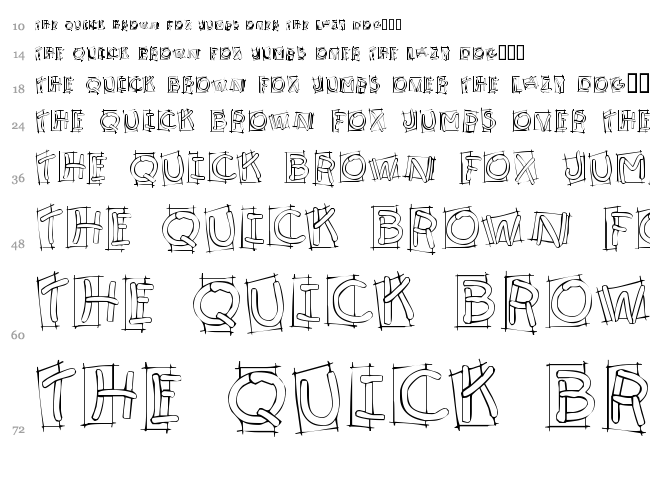 10 THE QUICK BROWN FOX JUMPS OVER THE LAZY DOG
14 THE QUICK BROWN FOX JUMPS OVER THE LAZY DOG
18 THE QUICK BROWN FOX JUMPS OVER THE LAZY DOG
24 THE QUICK BROWN FOX JUMPS OVER THE
36 THE QUICK BROWN FOX JUM
48 THE QUICK BROWN FO
60 THE QUICK BROW
72 THE QUICK BR